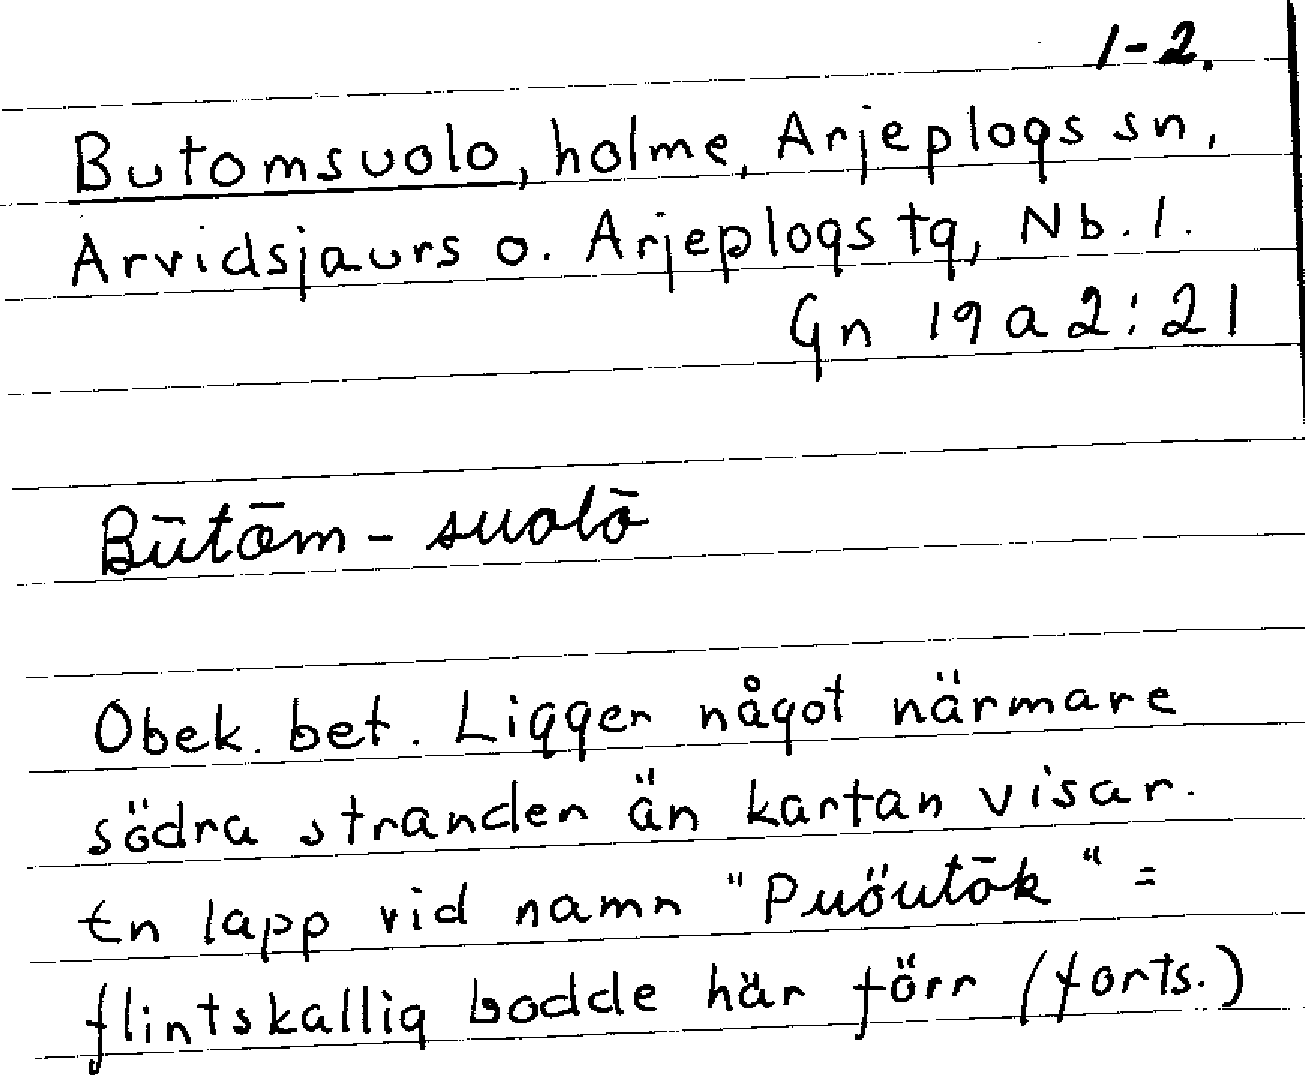 1-2.
Butomsuolo, holme, Arjeplogs sn,
Arvidsjaurs o. Arjeplogs tg, Nb. l.
Gn 19 a 2:21
Būtōm - suolō
Obek. bet. Ligger något närmare
södra stranden än kartan visar.
En lapp vid namn "Puöutōk" =
flintskallig bodde här förr (forts.)